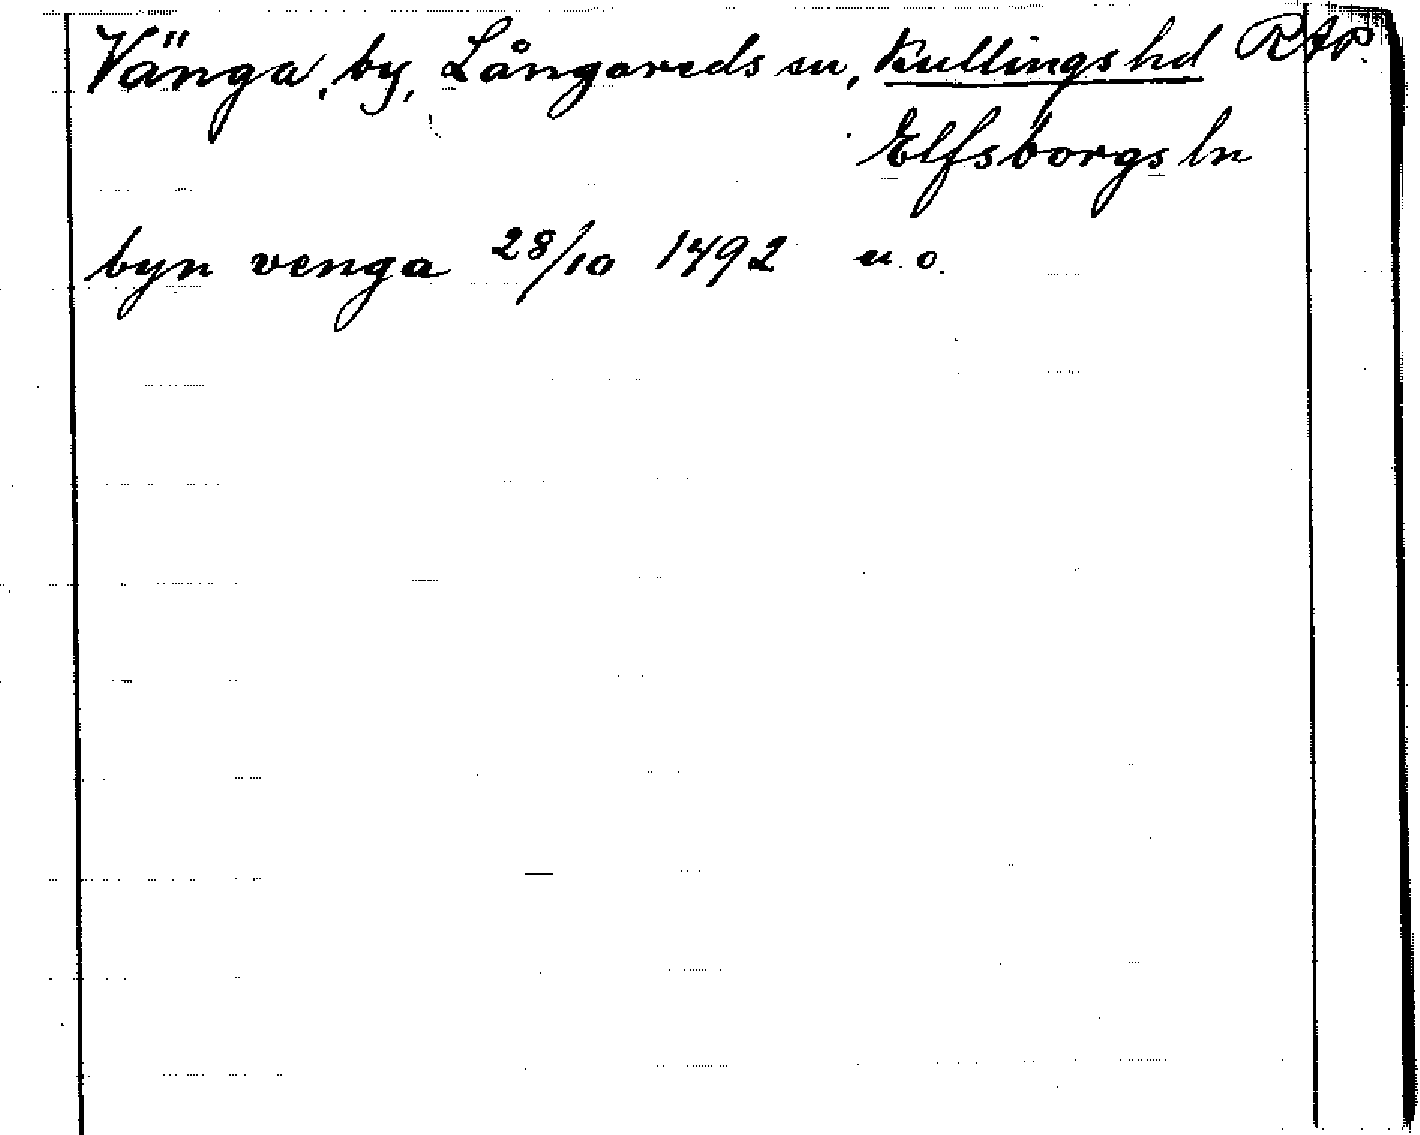 Vänga, by, Långareds sn, Kullings hd RAP.
Elfsborgs ln
byn venga 28/10 1492 u. o.